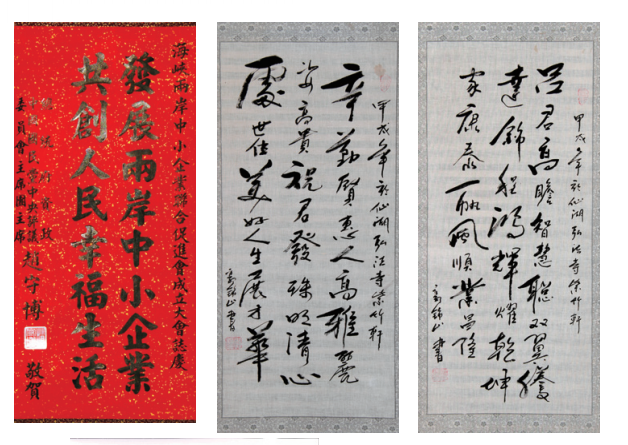 海峽兩岸中小企業聯合促進會成立大會誌慶
發展兩岸中小企業
共創人民幸福生活
總統府資政
中國國民黨中央評議
委員會主席團主席
趙守博
敬賀
甲戌年於仙湖弘法寺紫竹軒
辛勤賢惠人高雅麗
姿高貴祝君發珠明清心
處世佳美好人生展才華
書
甲戌年於仙湖弘法寺紫竹軒
呂君高瞻智慧聰双翼騰
達錦程鴻輝耀乾坤
家康泰一帆風順業昌隆
書